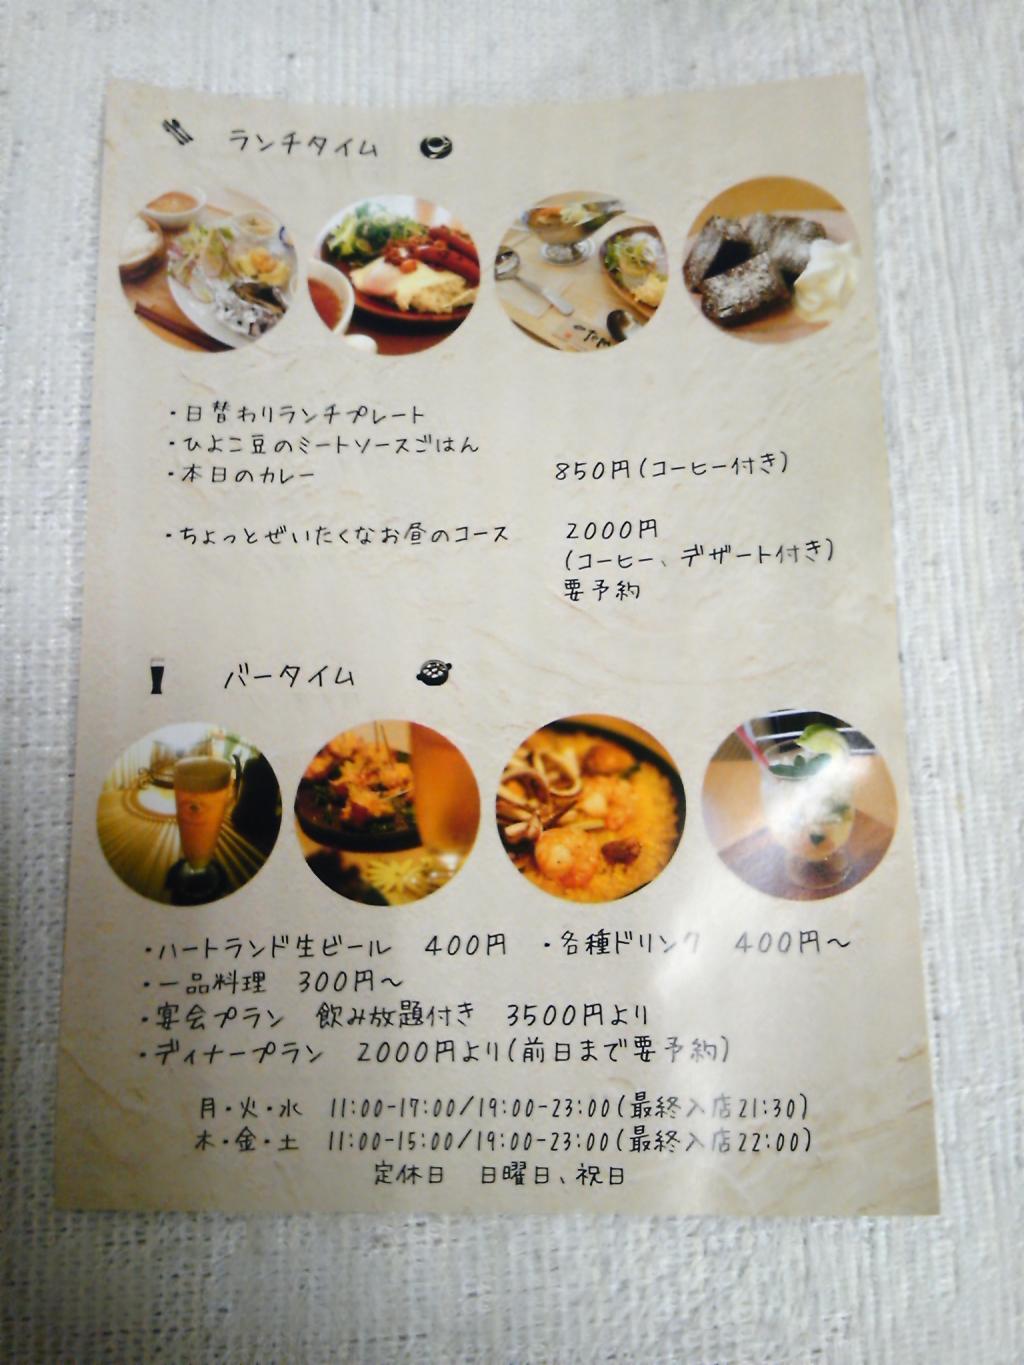 ランチタイム
・日替わりランチプレート
・ひよこ豆のミートソースごはん
・本日のカレー 850円(コーヒー付き)
・ちょっとぜいたくなお昼のコース 2000円
(コーヒー、デザート付き)
要予約
バータイム
・ハートランド生ビール 400円 ・各種ドリンク 400円～
・一品料理 300円～
・宴会プラン 飲み放題付き 3500円より
・ディナープラン 2000円より(前日まで要予約)
月・火・水 11:00-17:00/19:00-23:00(最終入店21:30)
木・金・土 11:00-15:00/19:00-23:00(最終入店22:00)
定休日 日曜日、祝日